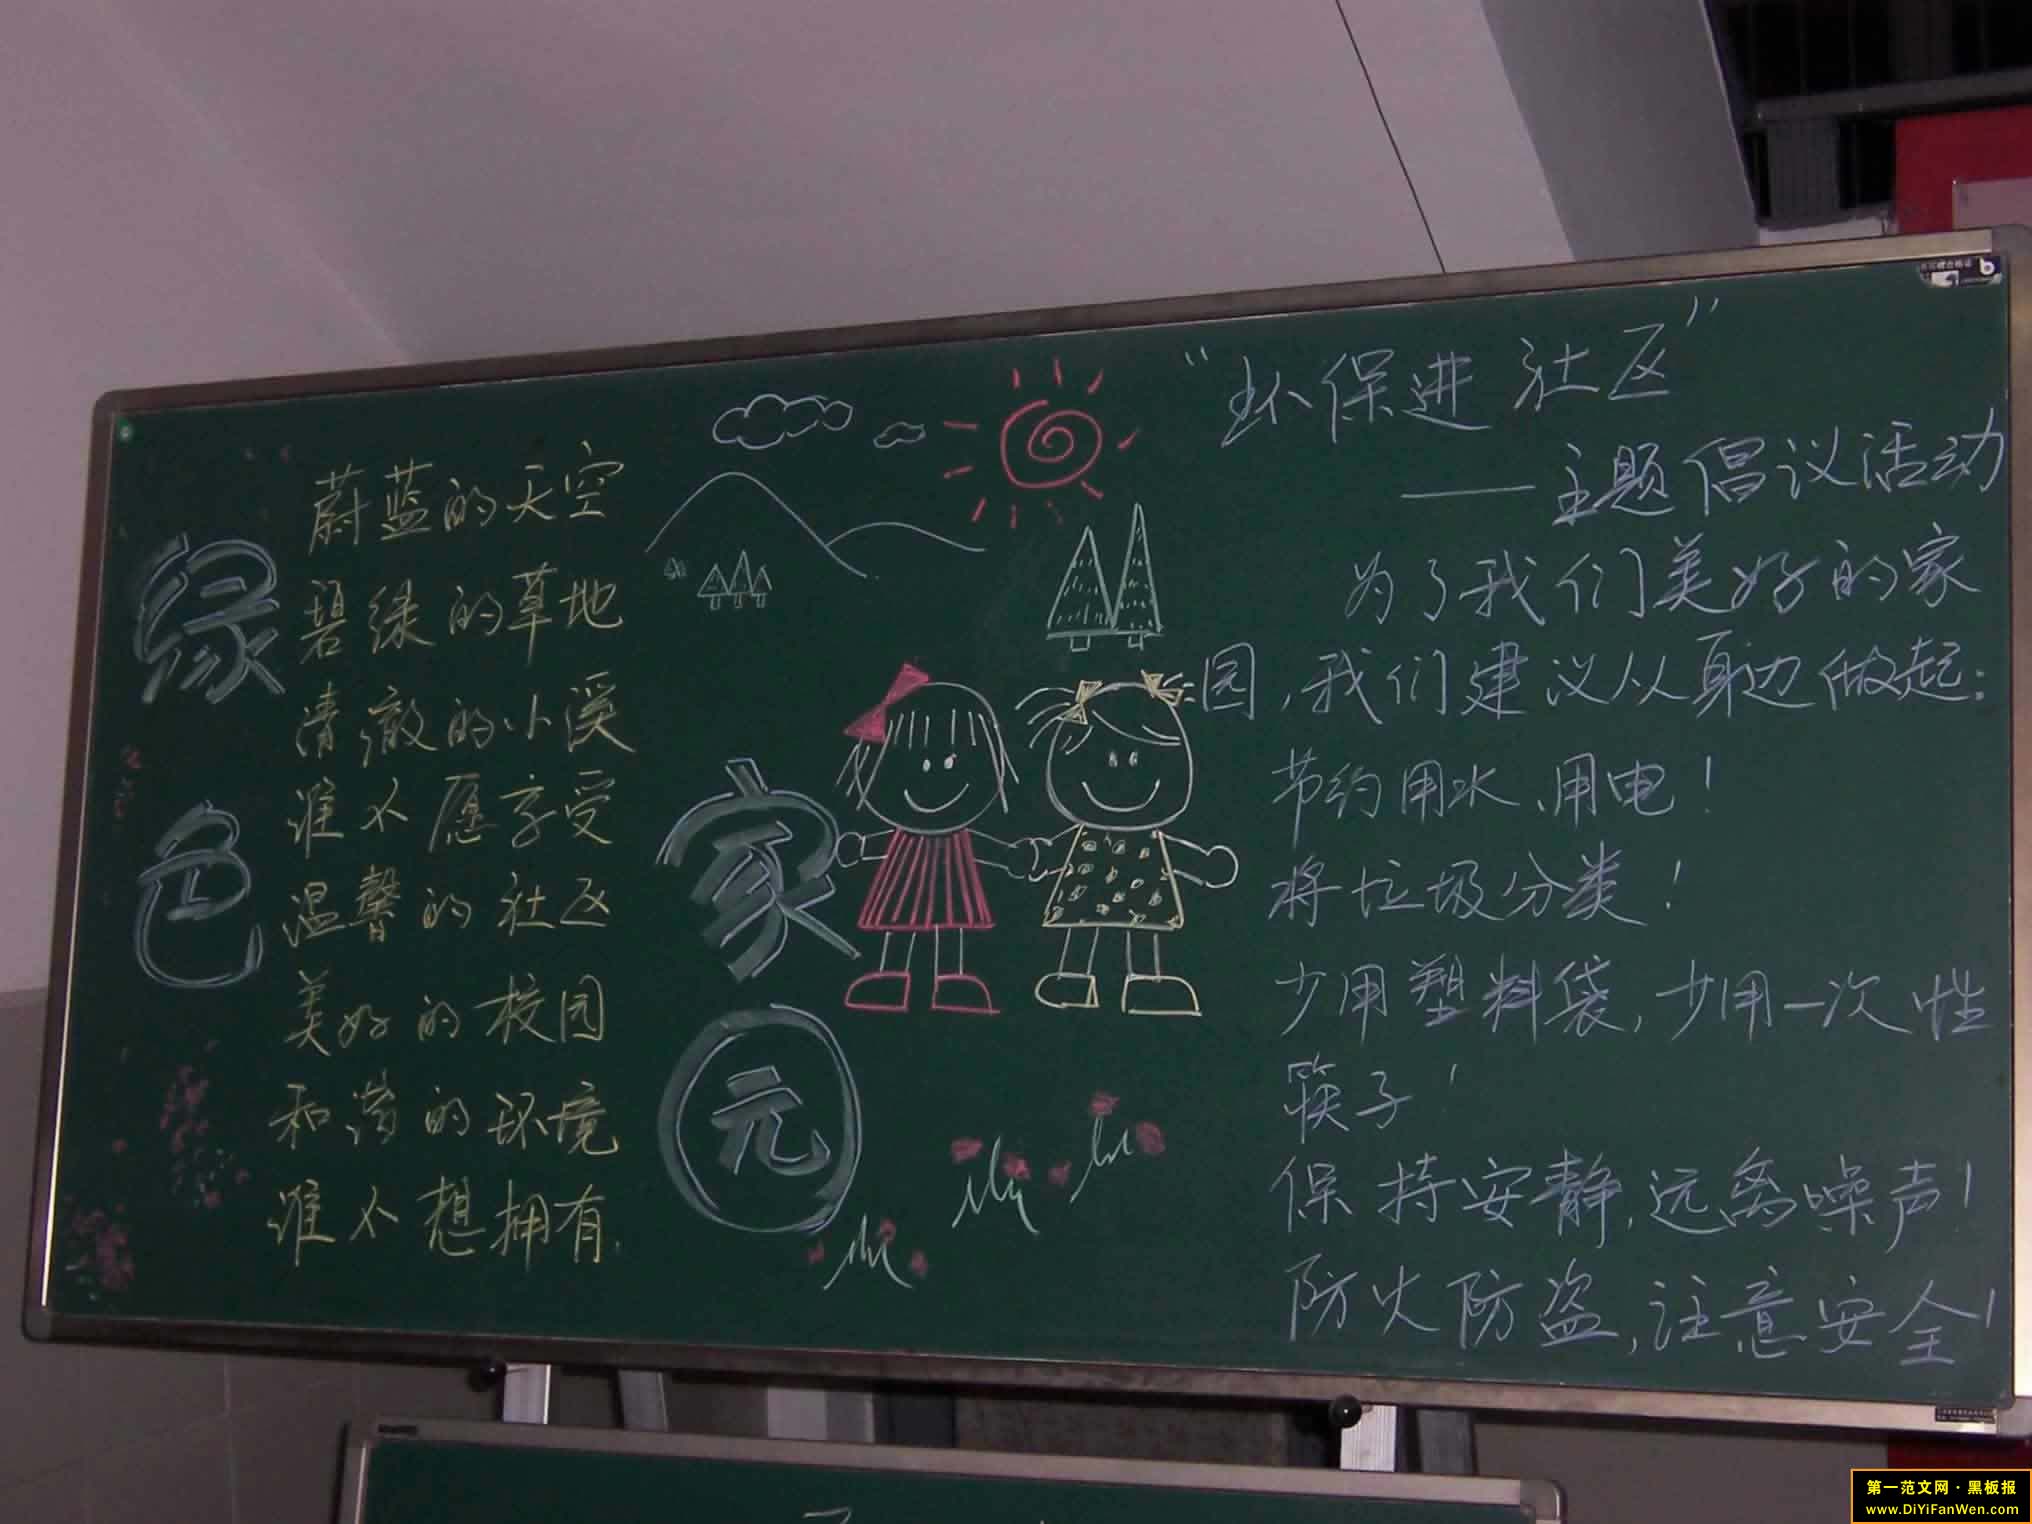 绿色
家园
蔚蓝的天空
碧绿的草地
清澈的小溪
谁不愿享受
温馨的社区
美好的校园
和谐的环境
谁不想拥有.
“环保进社区”
——主题倡议活动
为了我们美好的家
园,我们建议从身边做起:
节约用水、用电!
将垃圾分类!
少用塑料袋,少用一次性
筷子!
保持安静,远离噪声!
防火防盗,注意安全!
第一范文网·黑板报
www.DiYiFanWen.com